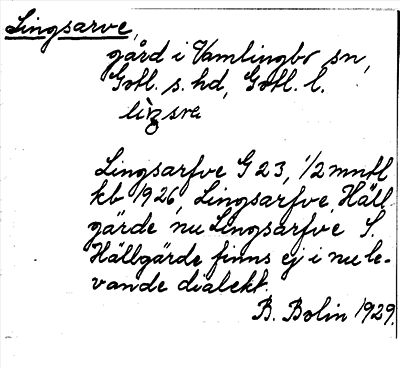 Lingsarve,
gård i Vamlingbo sn,
Gotl. s. hd, Gotl. l.
Lingsarfve G 23, 1/2 mntl
kb 1926, Lingsarfve, Häll-
gärde, nu Lingsarfve. S.
Hällgärde finns ej i nu le-
vande dialekt.
B. Bolin 1929.